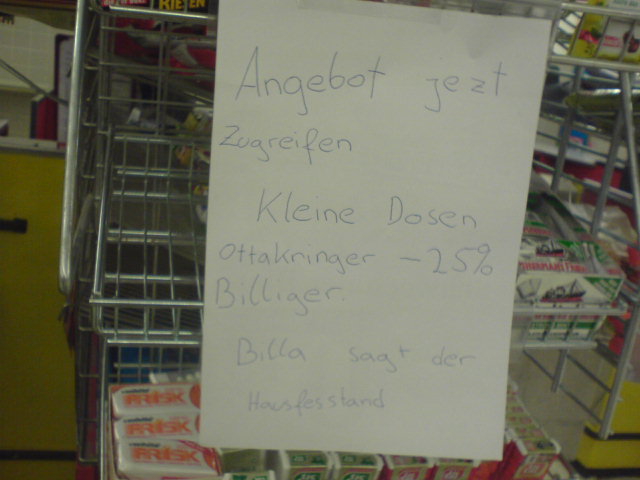 RIESEN
Angebot jezt
Zugreifen
Kleine Dosen
Ottakringer - 25%
Billiger.
Billa sagt der
Hausfesstand
FRISK
FRISK
FRISK
FISHERMAN'S FRIEND